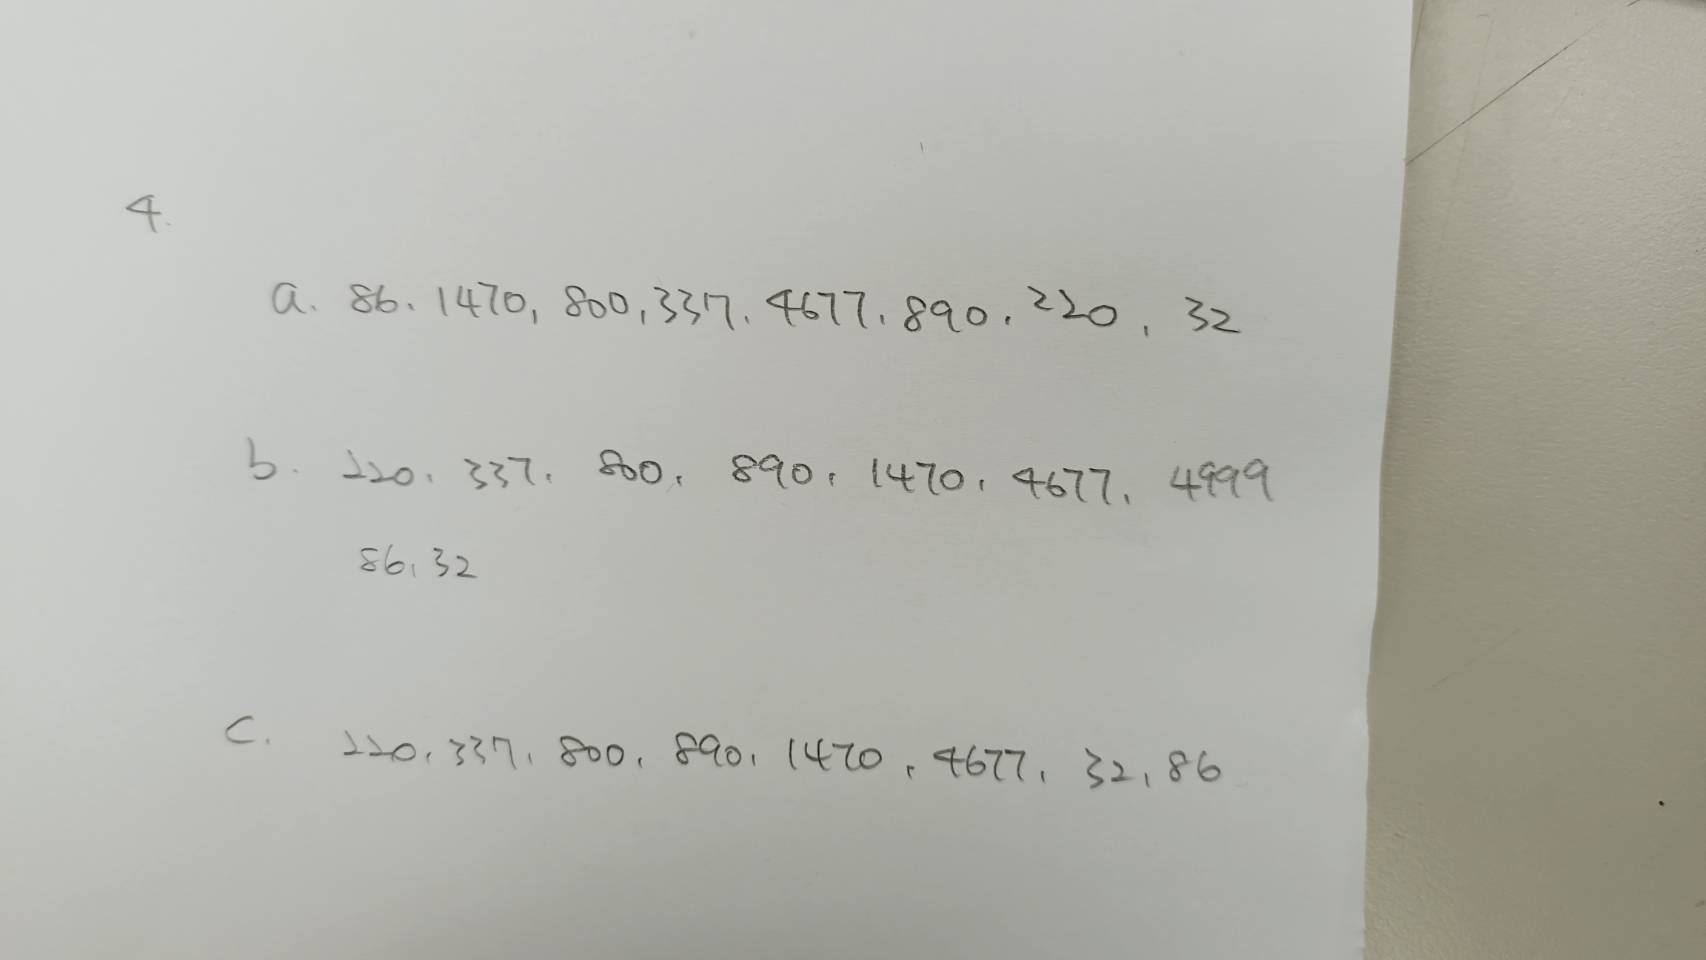 4.
a. 86. 1470, 800, 337, 4677, 890, 220, 32
b. 220, 337, 800, 890, 1470, 4677, 4999
86, 32
c. 220, 337, 800, 890, 1470, 4677, 32, 86